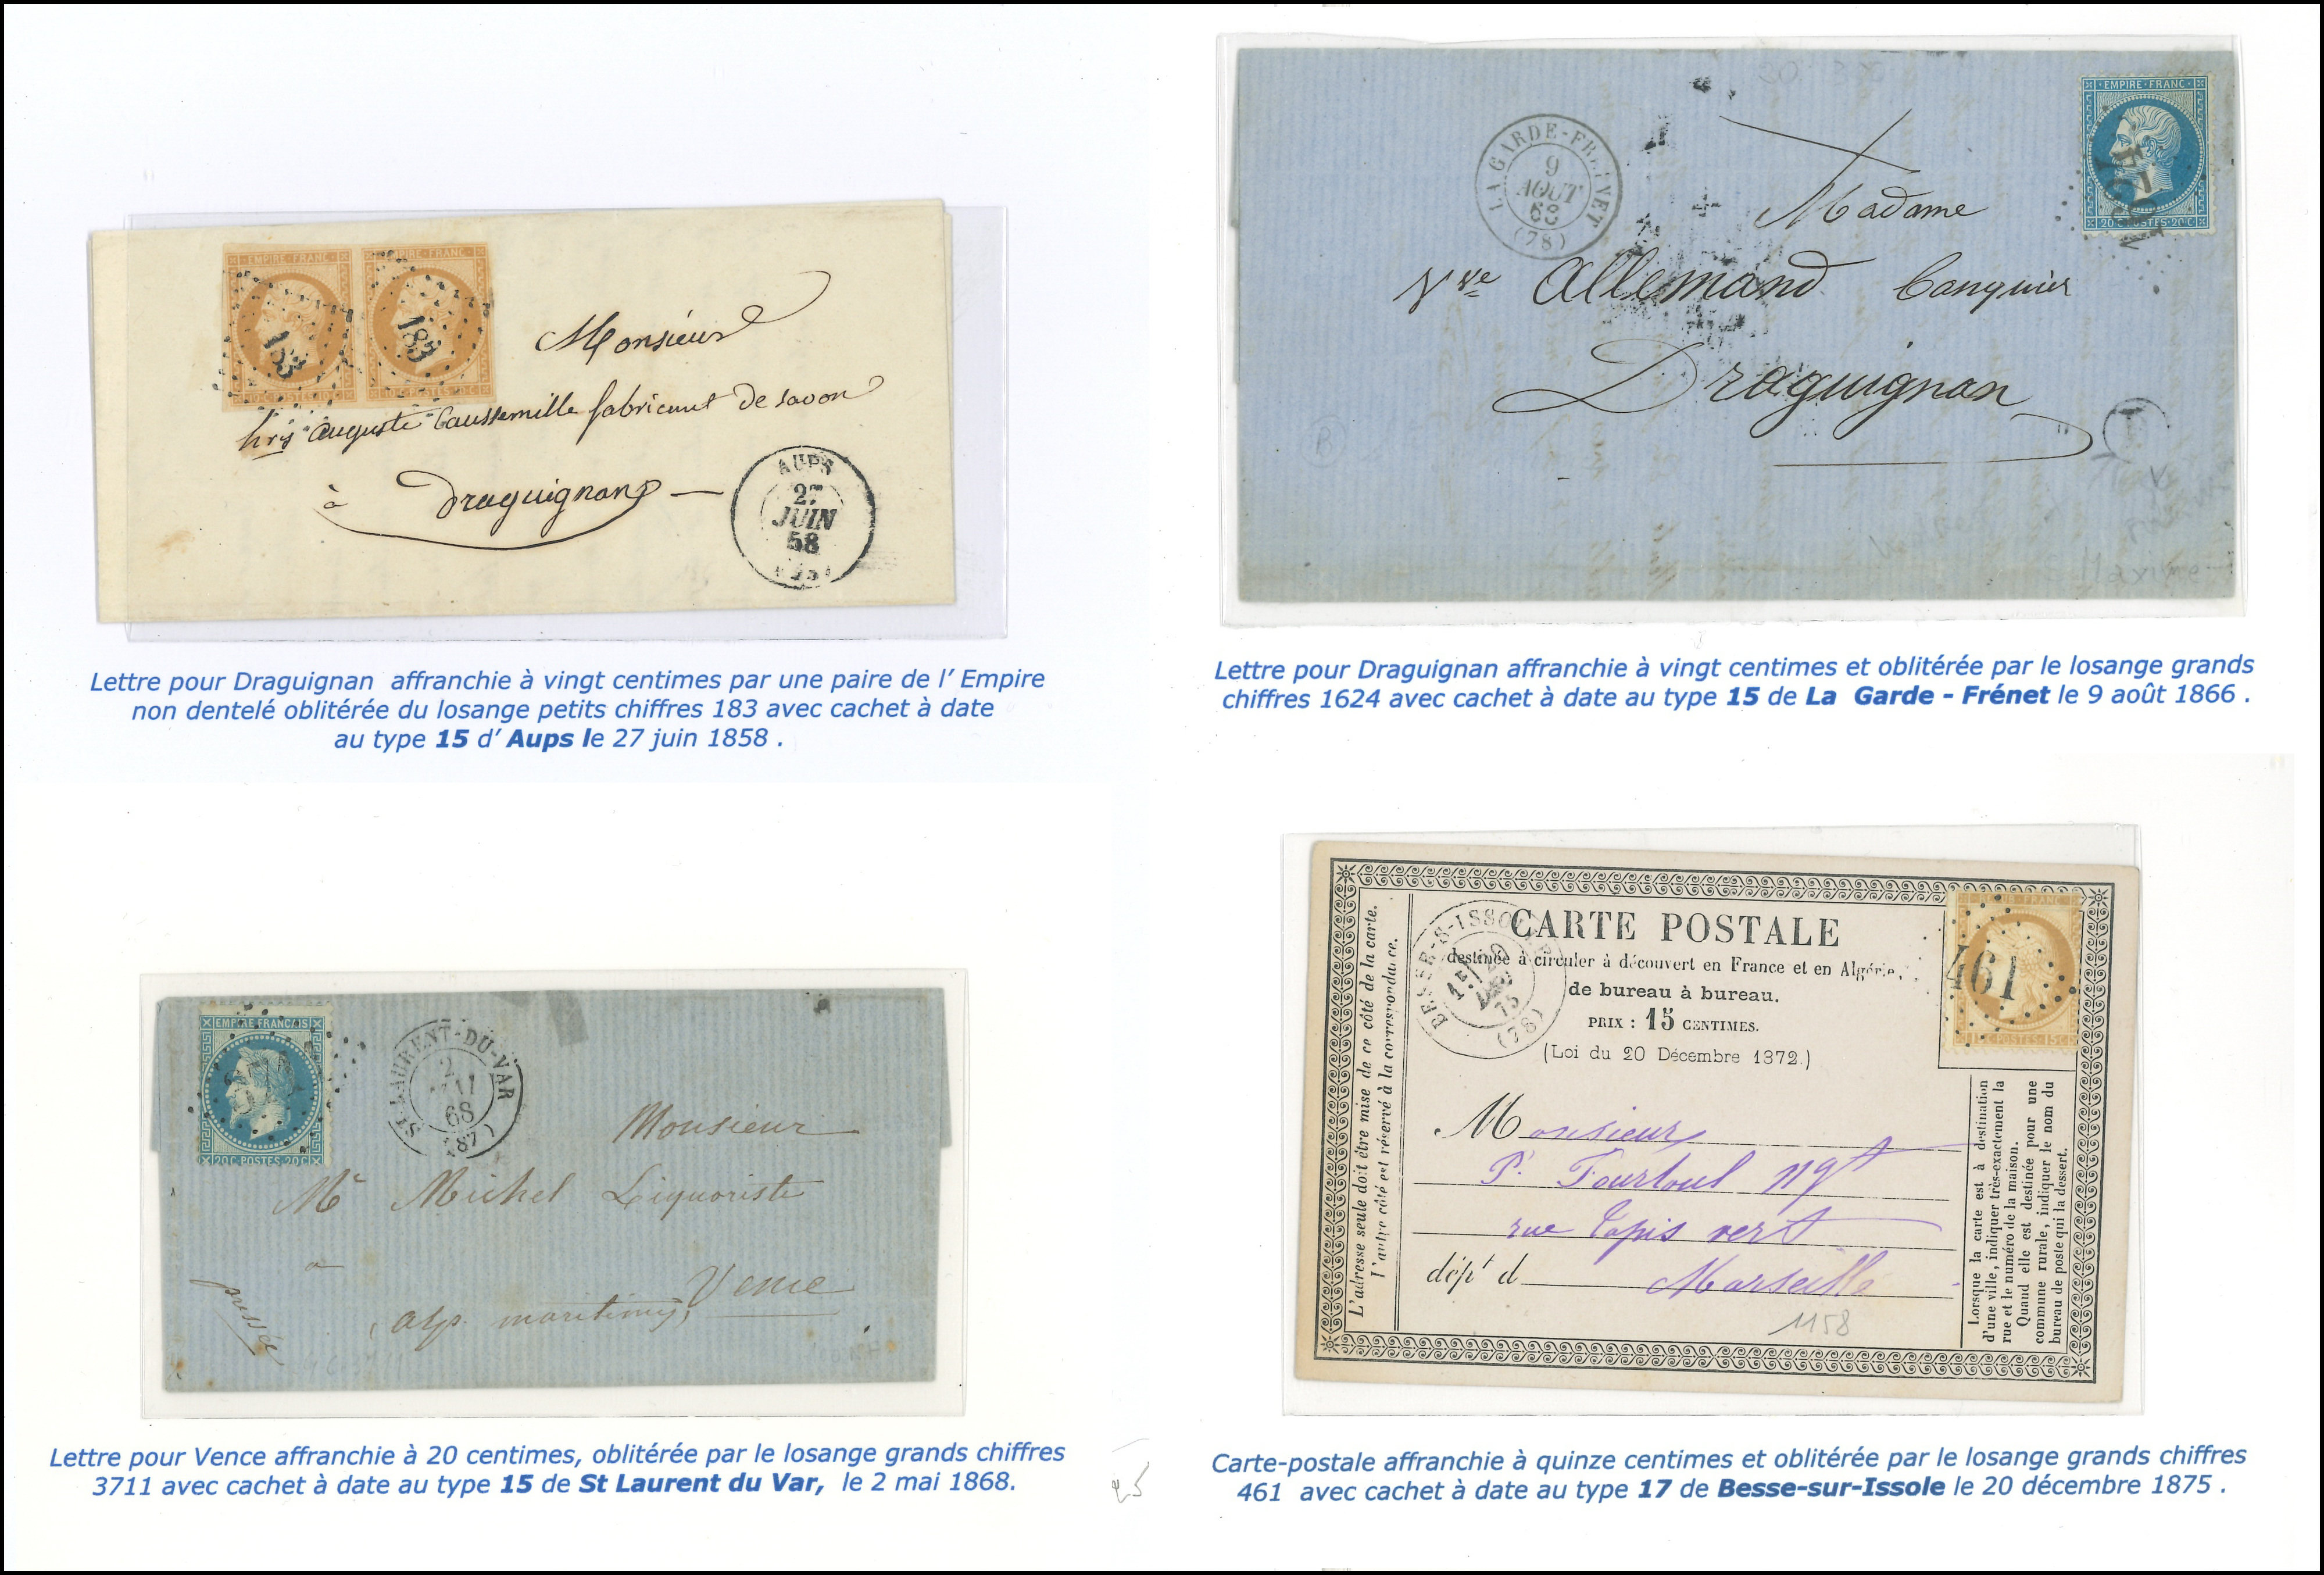 EMPIRE·FRANC·
10·C·POSTES·10·C
183
EMPIRE·FRANC·
10·C·POSTES·10·C
183
Monsieur
Auguste Caussemille fabricant de savon
à Draguignan
AUPS
27
JUIN
58
Lettre pour Draguignan affranchie à vingt centimes par une paire de l' Empire
non dentelé oblitérée du losange petits chiffres 183 avec cachet à date
au type 15 d' Aups le 27 juin 1858 .
LA GARDE-FREINET
9
AOUT
(78)
·EMPIRE·FRANC·
20·C·POSTES·20·C
Madame
Vve Allemand banquier
Draguignan
B
Lettre pour Draguignan affranchie à vingt centimes et oblitérée par le losange grands
chiffres 1624 avec cachet à date au type 15 de La Garde - Frénet le 9 août 1866 .
EMPIRE FRANÇAIS
20C·POSTES·20C
ST-LAURENT-DU-VAR
2
MAI
68
(87)
Monsieur
Mr Michel Liquoriste
à
Vence
alp. maritimes,
pressée
Lettre pour Vence affranchie à 20 centimes, oblitérée par le losange grands chiffres
3711 avec cachet à date au type 15 de St Laurent du Var, le 2 mai 1868.
25
BESSE-S-ISSOLE
20
DEC
75
(78)
CARTE POSTALE
destinée à circuler à découvert en France et en Algérie,
de bureau à bureau.
PRIX : 15 CENTIMES.
(Loi du 20 Décembre 1872.)
15C·POSTES·15C
461
L'adresse seule doit être mise de ce côté de la carte.
L'autre côté est réservé à la correspondance.
Monsieur
P. Tourtoul Ngt
rue Tapis vert
dépt d
Marseille
1158
Lorsque la carte est à destination
d'une ville, indiquer très-exactement la
rue et le numéro de la maison.
Quand elle est destinée pour une
commune rurale, indiquer le nom du
bureau de poste qui la dessert.
Carte-postale affranchie à quinze centimes et oblitérée par le losange grands chiffres
461 avec cachet à date au type 17 de Besse-sur-Issole le 20 décembre 1875 .